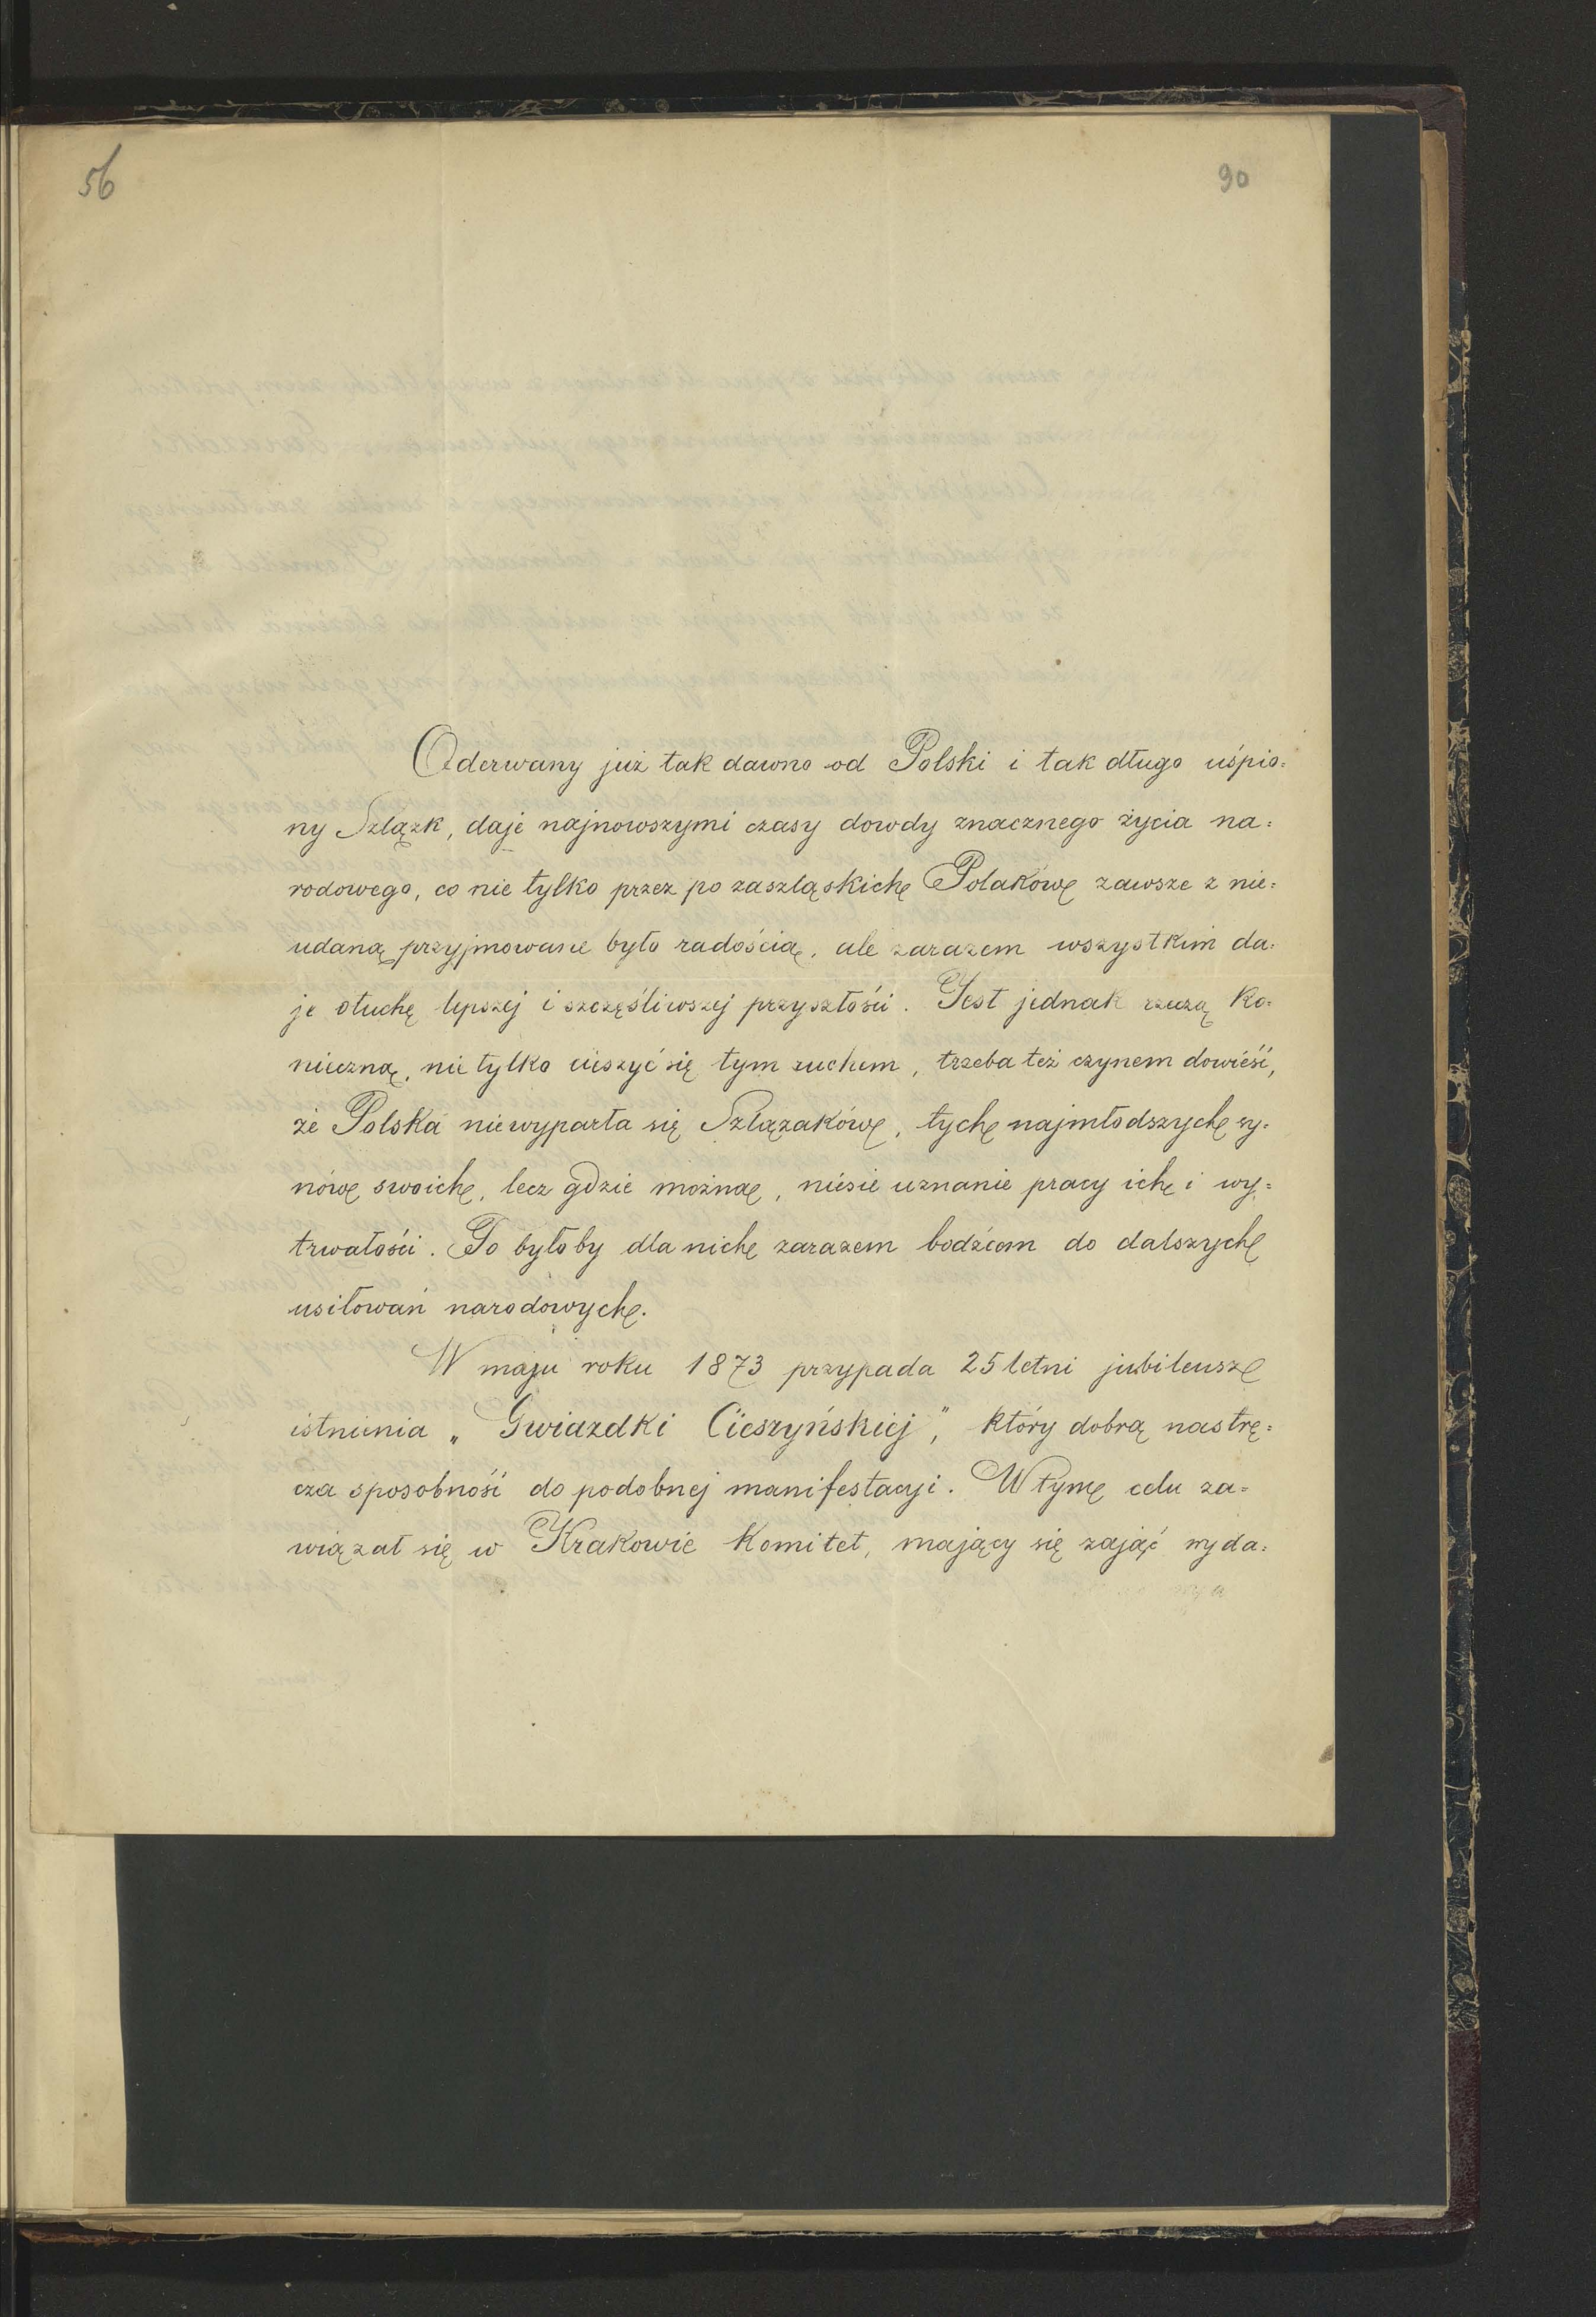 56
90
Oderwany już tak dawno od Polski i tak długo uśpio=
ny Szlązk, daje najnowszymi czasy dowdy znacznego życia na=
rodowego, co nie tylko przez po zaszląskich Polaków zawsze z nie=
udaną przyjmowane było radością, ale zarazem wszystkim da=
je otuchę lepszej i szczęśliwszej przyszłości. Jest jednak rzeczą ko=
nieczną, nie tylko cieszyć się tym ruchem, trzeba też czynem dowieść,
że Polska niewyparła się Szlązaków, tych najmłodszych sy=
nów swoich, lecz gdzie można, niesie uznanie pracy ich i wy=
trwałości. To byłoby dla nich zarazem bodźcem do dalszych
usiłowań narodowych.
W maju roku 1873 przypada 25letni jubileusz
istnienia „Gwiazdki Cieszyńskiej", który dobrą nastrę=
cza sposobność do podobnej manifestacyi. W tym celu za=
wiązał się w Krakowie Komitet, mający się zająć wyda=